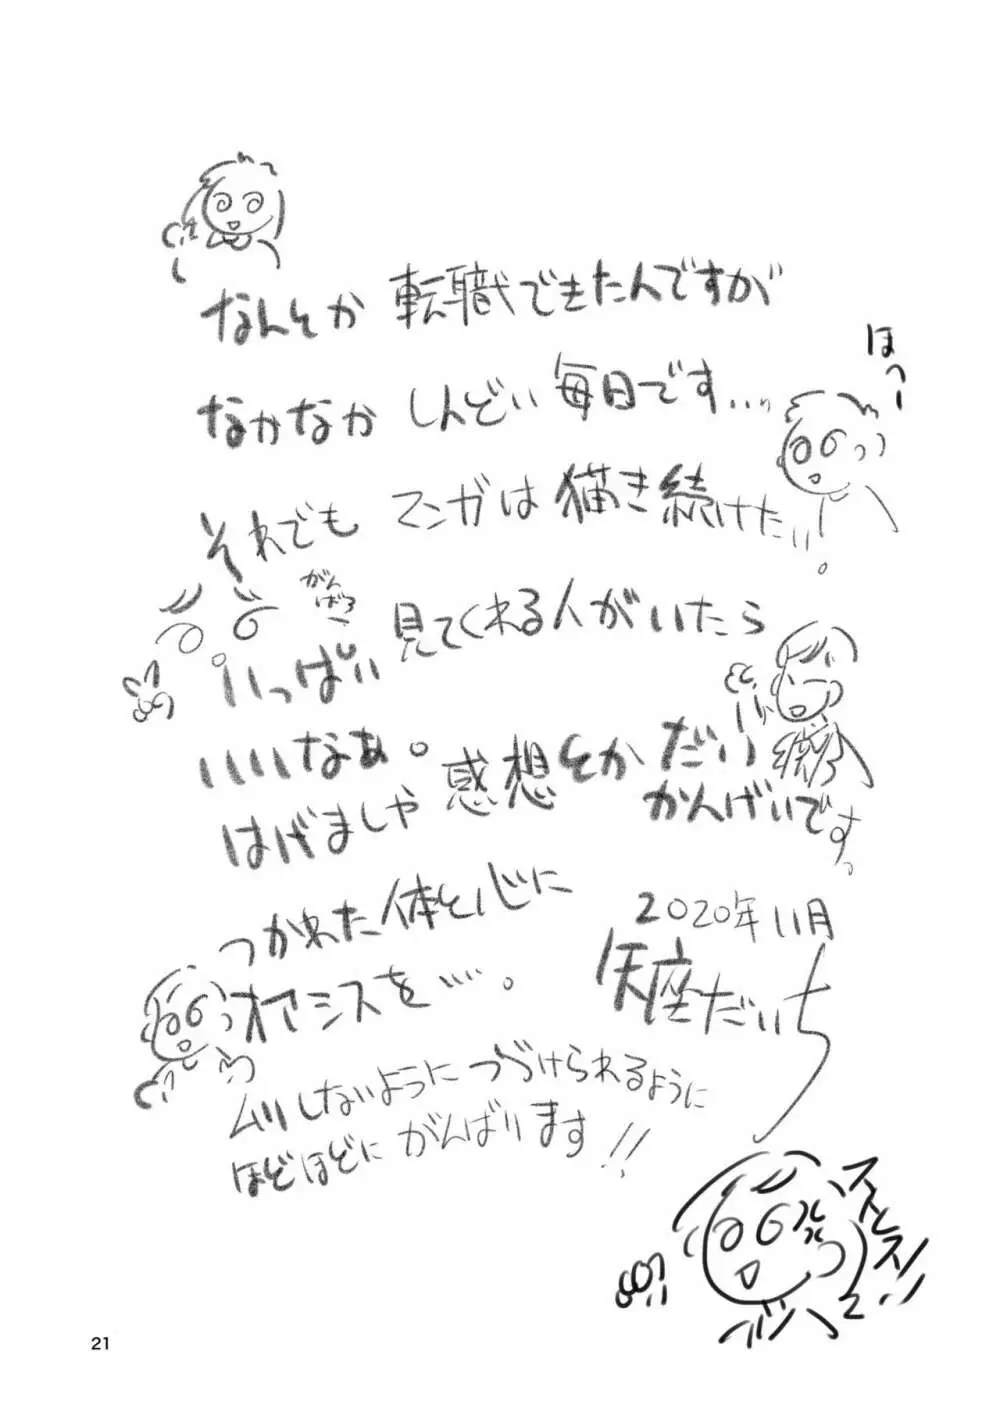 なんとか転職できたんですが
ほっー
なかなかしんどい毎日です…
それでもマンガは描き続けたい。
がん
ばろー
いっぱい見てくれる人がいたら
いいなあ。感想とかだい
はげましや
かんげいです。
つかれた体と心に
オアシスを…。
2020年11月
矢座だいち
ムリしないようにつづけられるように
ほどほどにがんばります!!
21